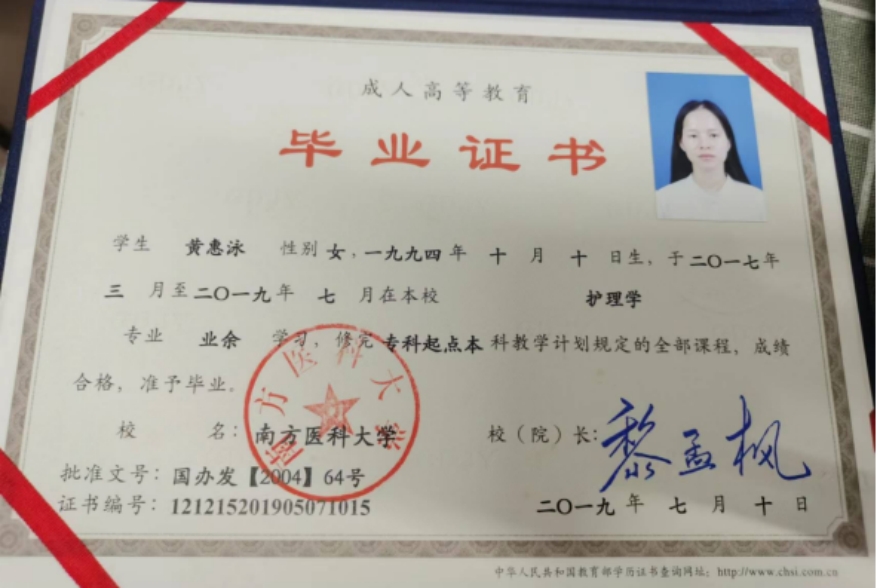 成人高等教育
毕业证书
学生 黄惠泳 性别 女，一九九四 年 十 月 十 日生，于 二〇一七 年
三 月至 二〇一九 年 七 月在本校 护理学
专业 业余 学习，修完 专科起点本 科教学计划规定的全部课程，成绩
合格，准予毕业。
南方医科大学
校 名：南方医科大学 校（院）长：黎孟枫
批准文号：国办发【2004】64号
证书编号：121215201905071015 二〇一九 年 七 月 十 日
中华人民共和国教育部学历证书查询网址：http://www.chsi.com.cn